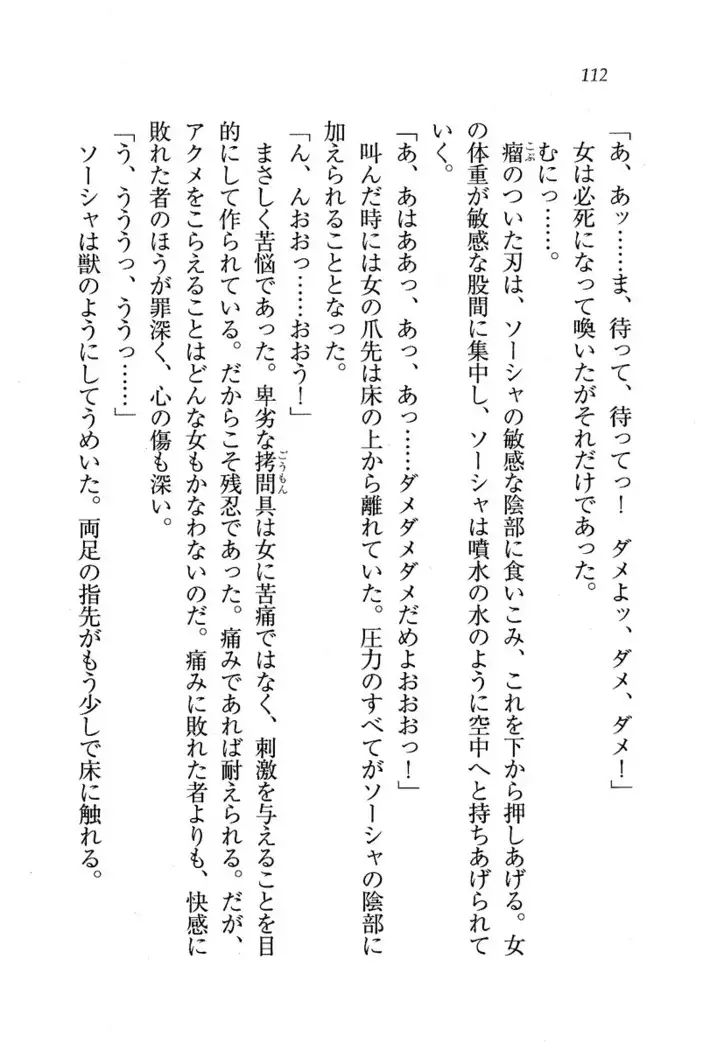 112
「あ、あッ……ま、待って、待ってっ！　ダメよッ、ダメ、ダメ！」
女は必死になって喚いたがそれだけであった。
むにっ……。
こぶ
瘤のついた刃は、ソーシャの敏感な陰部に食いこみ、これを下から押しあげる。女
の体重が敏感な股間に集中し、ソーシャは噴水の水のように空中へと持ちあげられて
いく。
「あ、あはああっ、あっ、あっ……ダメダメダメだめよおおおっ！」
叫んだ時には女の爪先は床の上から離れていた。圧力のすべてがソーシャの陰部に
加えられることとなった。
「ん、んおおっ……おおう！」
ごうもん
まさしく苦悩であった。卑劣な拷問具は女に苦痛ではなく、刺激を与えることを目
的にして作られている。だからこそ残忍であった。痛みであれば耐えられる。だが、
アクメをこらえることはどんな女もかなわないのだ。痛みに敗れた者よりも、快感に
敗れた者のほうが罪深く、心の傷も深い。
「う、うううっ、ううっ……」
ソーシャは獣のようにしてうめいた。両足の指先がもう少しで床に触れる。